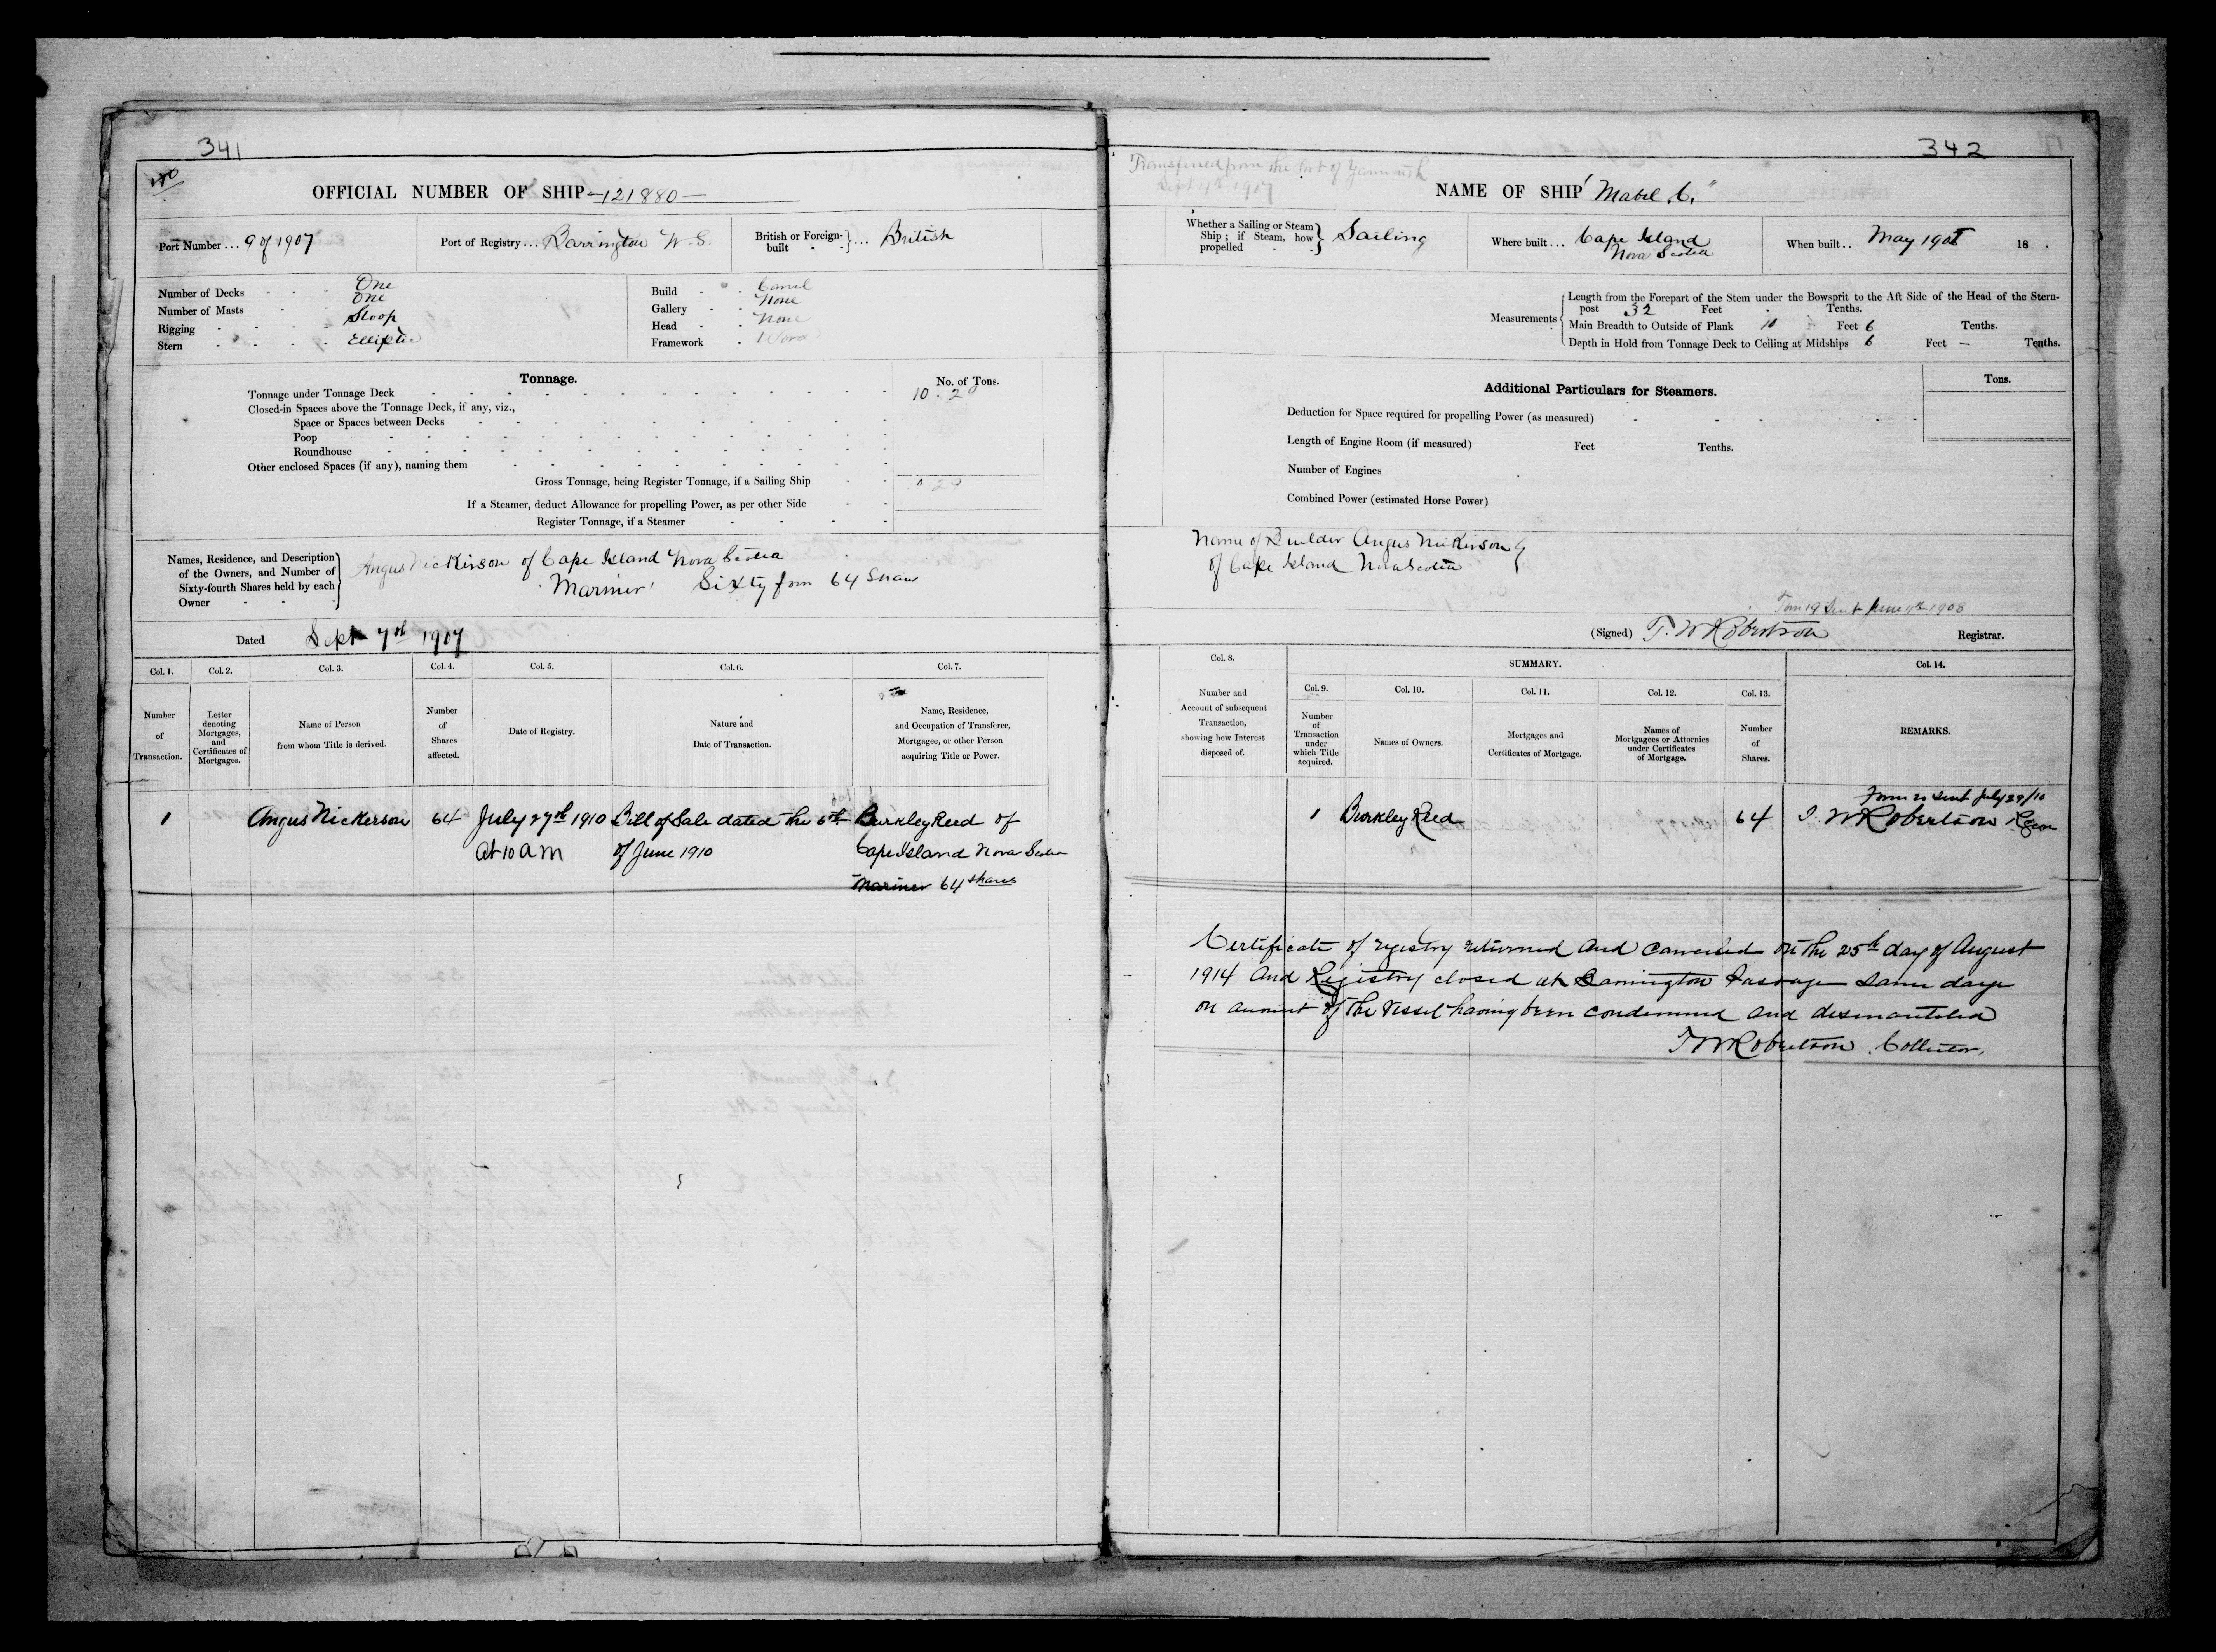 341
OFFICIAL NUMBER OF SHIP 121880
Port Number ... 9 of 1907
Port of Registry ... Barrington N.S.
British or Foreign-built ... British
Number of Decks One
Number of Masts One
Rigging Sloop
Stern Elliptic
Build Carvel
Gallery None
Head None
Framework Wood
Tonnage.
No. of Tons.
Tonnage under Tonnage Deck 10.20
Closed-in Spaces above the Tonnage Deck, if any, viz.,
Space or Spaces between Decks
Poop
Roundhouse
Other enclosed Spaces (if any), naming them
Gross Tonnage, being Register Tonnage, if a Sailing Ship
If a Steamer, deduct Allowance for propelling Power, as per other Side
Register Tonnage, if a Steamer
Names, Residence, and Description of the Owners, and Number of Sixty-fourth Shares held by each Owner
Angus Nickerson of Cape Island Nova Scotia
"Mariner" Sixty four 64 Shares
Dated Sept 7th 1907
Col. 1. Col. 2. Col. 3. Col. 4. Col. 5. Col. 6. Col. 7.
Number of Transaction.
Letter denoting Mortgages, and Certificates of Mortgages.
Name of Person from whom Title is derived.
Number of Shares affected.
Date of Registry.
Nature and Date of Transaction.
Name, Residence, and Occupation of Transferee, Mortgagee, or other Person acquiring Title or Power.
1 Angus Nickerson 64 July 27th 1910 Bill of Sale dated the 6th Burkley Reed of
at 10 am of June 1910 Cape Island Nova Scotia
Mariner 64 shares
342
Transferred from the Port of Yarmouth
Sept 1907
NAME OF SHIP "Mabel C."
Whether a Sailing or Steam Ship; if Steam, how propelled Sailing
Where built ... Cape Island
Nova Scotia
When built .. May 190 18 .
Measurements
Length from the Forepart of the Stem under the Bowsprit to the Aft Side of the Head of the Stern-
post 32 Feet Tenths.
Main Breadth to Outside of Plank 10 Feet 6 Tenths.
Depth in Hold from Tonnage Deck to Ceiling at Midships 6 Feet — Tenths.
Additional Particulars for Steamers.
Tons.
Deduction for Space required for propelling Power (as measured)
Length of Engine Room (if measured) Feet Tenths.
Number of Engines
Combined Power (estimated Horse Power)
Name of Builder Angus Nickerson
of Cape Island Nova Scotia
Form 19 Sent June 1908
(Signed) T. W Robertson Registrar.
Col. 8. SUMMARY. Col. 14.
Col. 9. Col. 10. Col. 11. Col. 12. Col. 13.
Number and Account of subsequent Transaction, showing how Interest disposed of.
Number of Transaction under which Title acquired.
Names of Owners.
Mortgages and Certificates of Mortgage.
Names of Mortgagees or Attornies under Certificates of Mortgage.
Number of Shares.
REMARKS.
Form 20 sent July 29/10
1 Burkley Reed 64 T. W Robertson
Certificate of registry returned and cancelled on the 25th day of August
1914 and Registry closed at Barrington Passage same day
on account of the vessel having been condemned and dismanteled
T W Robertson Collector.